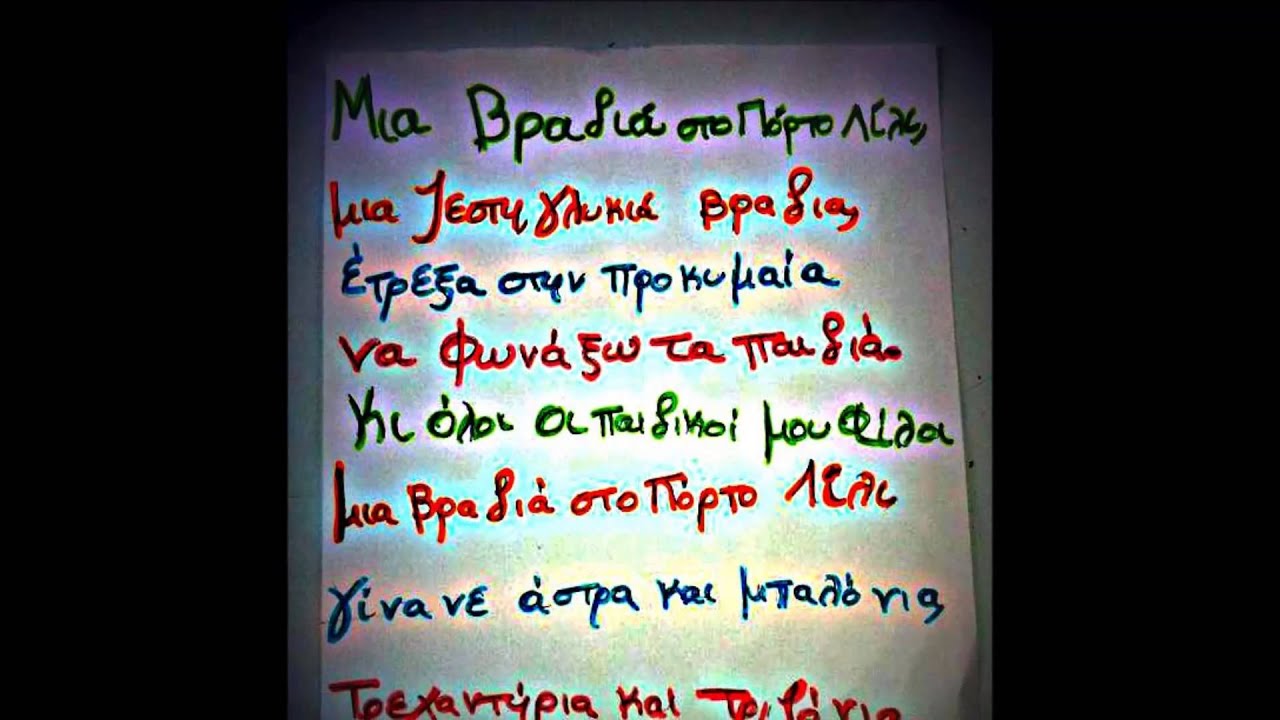 Μια Βραδιά στο Πόρτο Λίλι,
μια ζεστη γλυκιά βραδια,
έτρεξα στην προκυμαία
να φωνάξω τα παιδιά.
Κι όλοι οι παιδικοί μου φίλοι
μια βραδιά στο Πόρτο Λίλι
γίνανε άστρα και μπαλόνια,
Τρεχαντήρια και